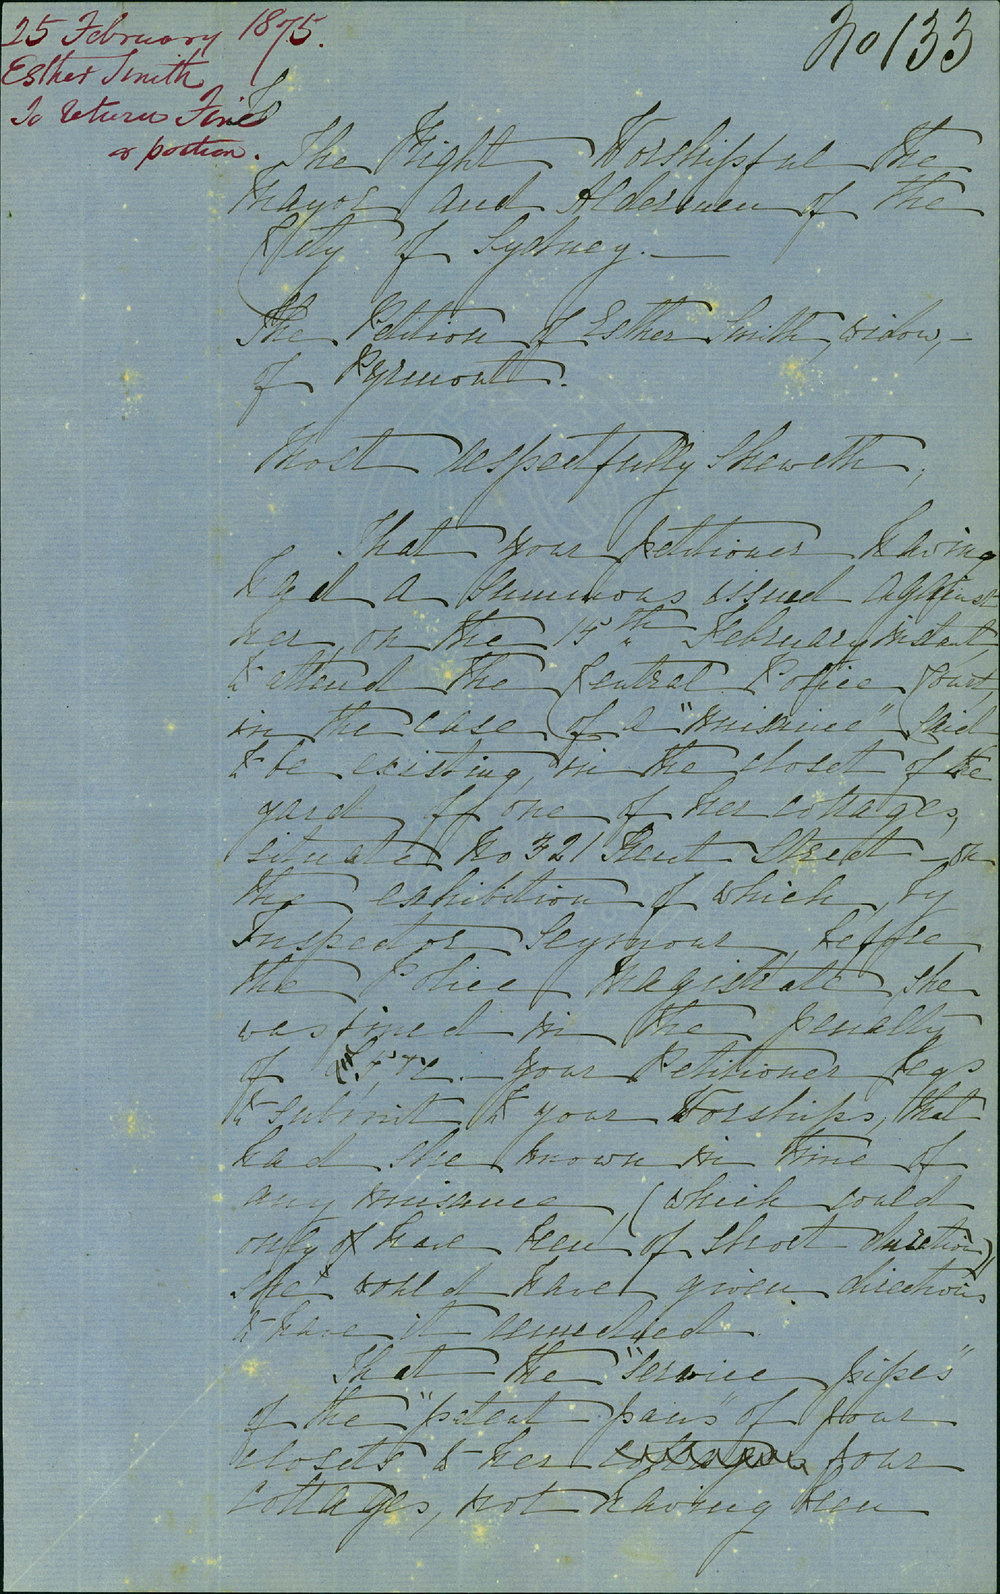 25 February 1875.
Esther Smith
To return Fine
or portion.
No 133
To
The Right Worshipful the
Mayor and Aldermen of the
City of Sydney. —
The Petition of Esther Smith, widow, —
of Pyrmont.
Most respectfully sheweth,
That your petitioner having
had a summons issued against
her, on the 15th February instant,
to attend the Central Police Court,
in the case of a "nuisance" said
to be existing, in the closet of the
yard of one of her cottages,
situate No 321 Kent Street – on
the exhibition of which, by
Inspector Seymour, before
the Police Magistrate, she
was fined in the penalty
of
your Petitioner begs
to submit to your Worships, that
had she known in time of
any nuisance, (which could
only have been of short duration)
she would have given directions
to have it remedied.
That the "service pipes"
of the "patent pans" of four
closets to her cottages four
cottages, not having been